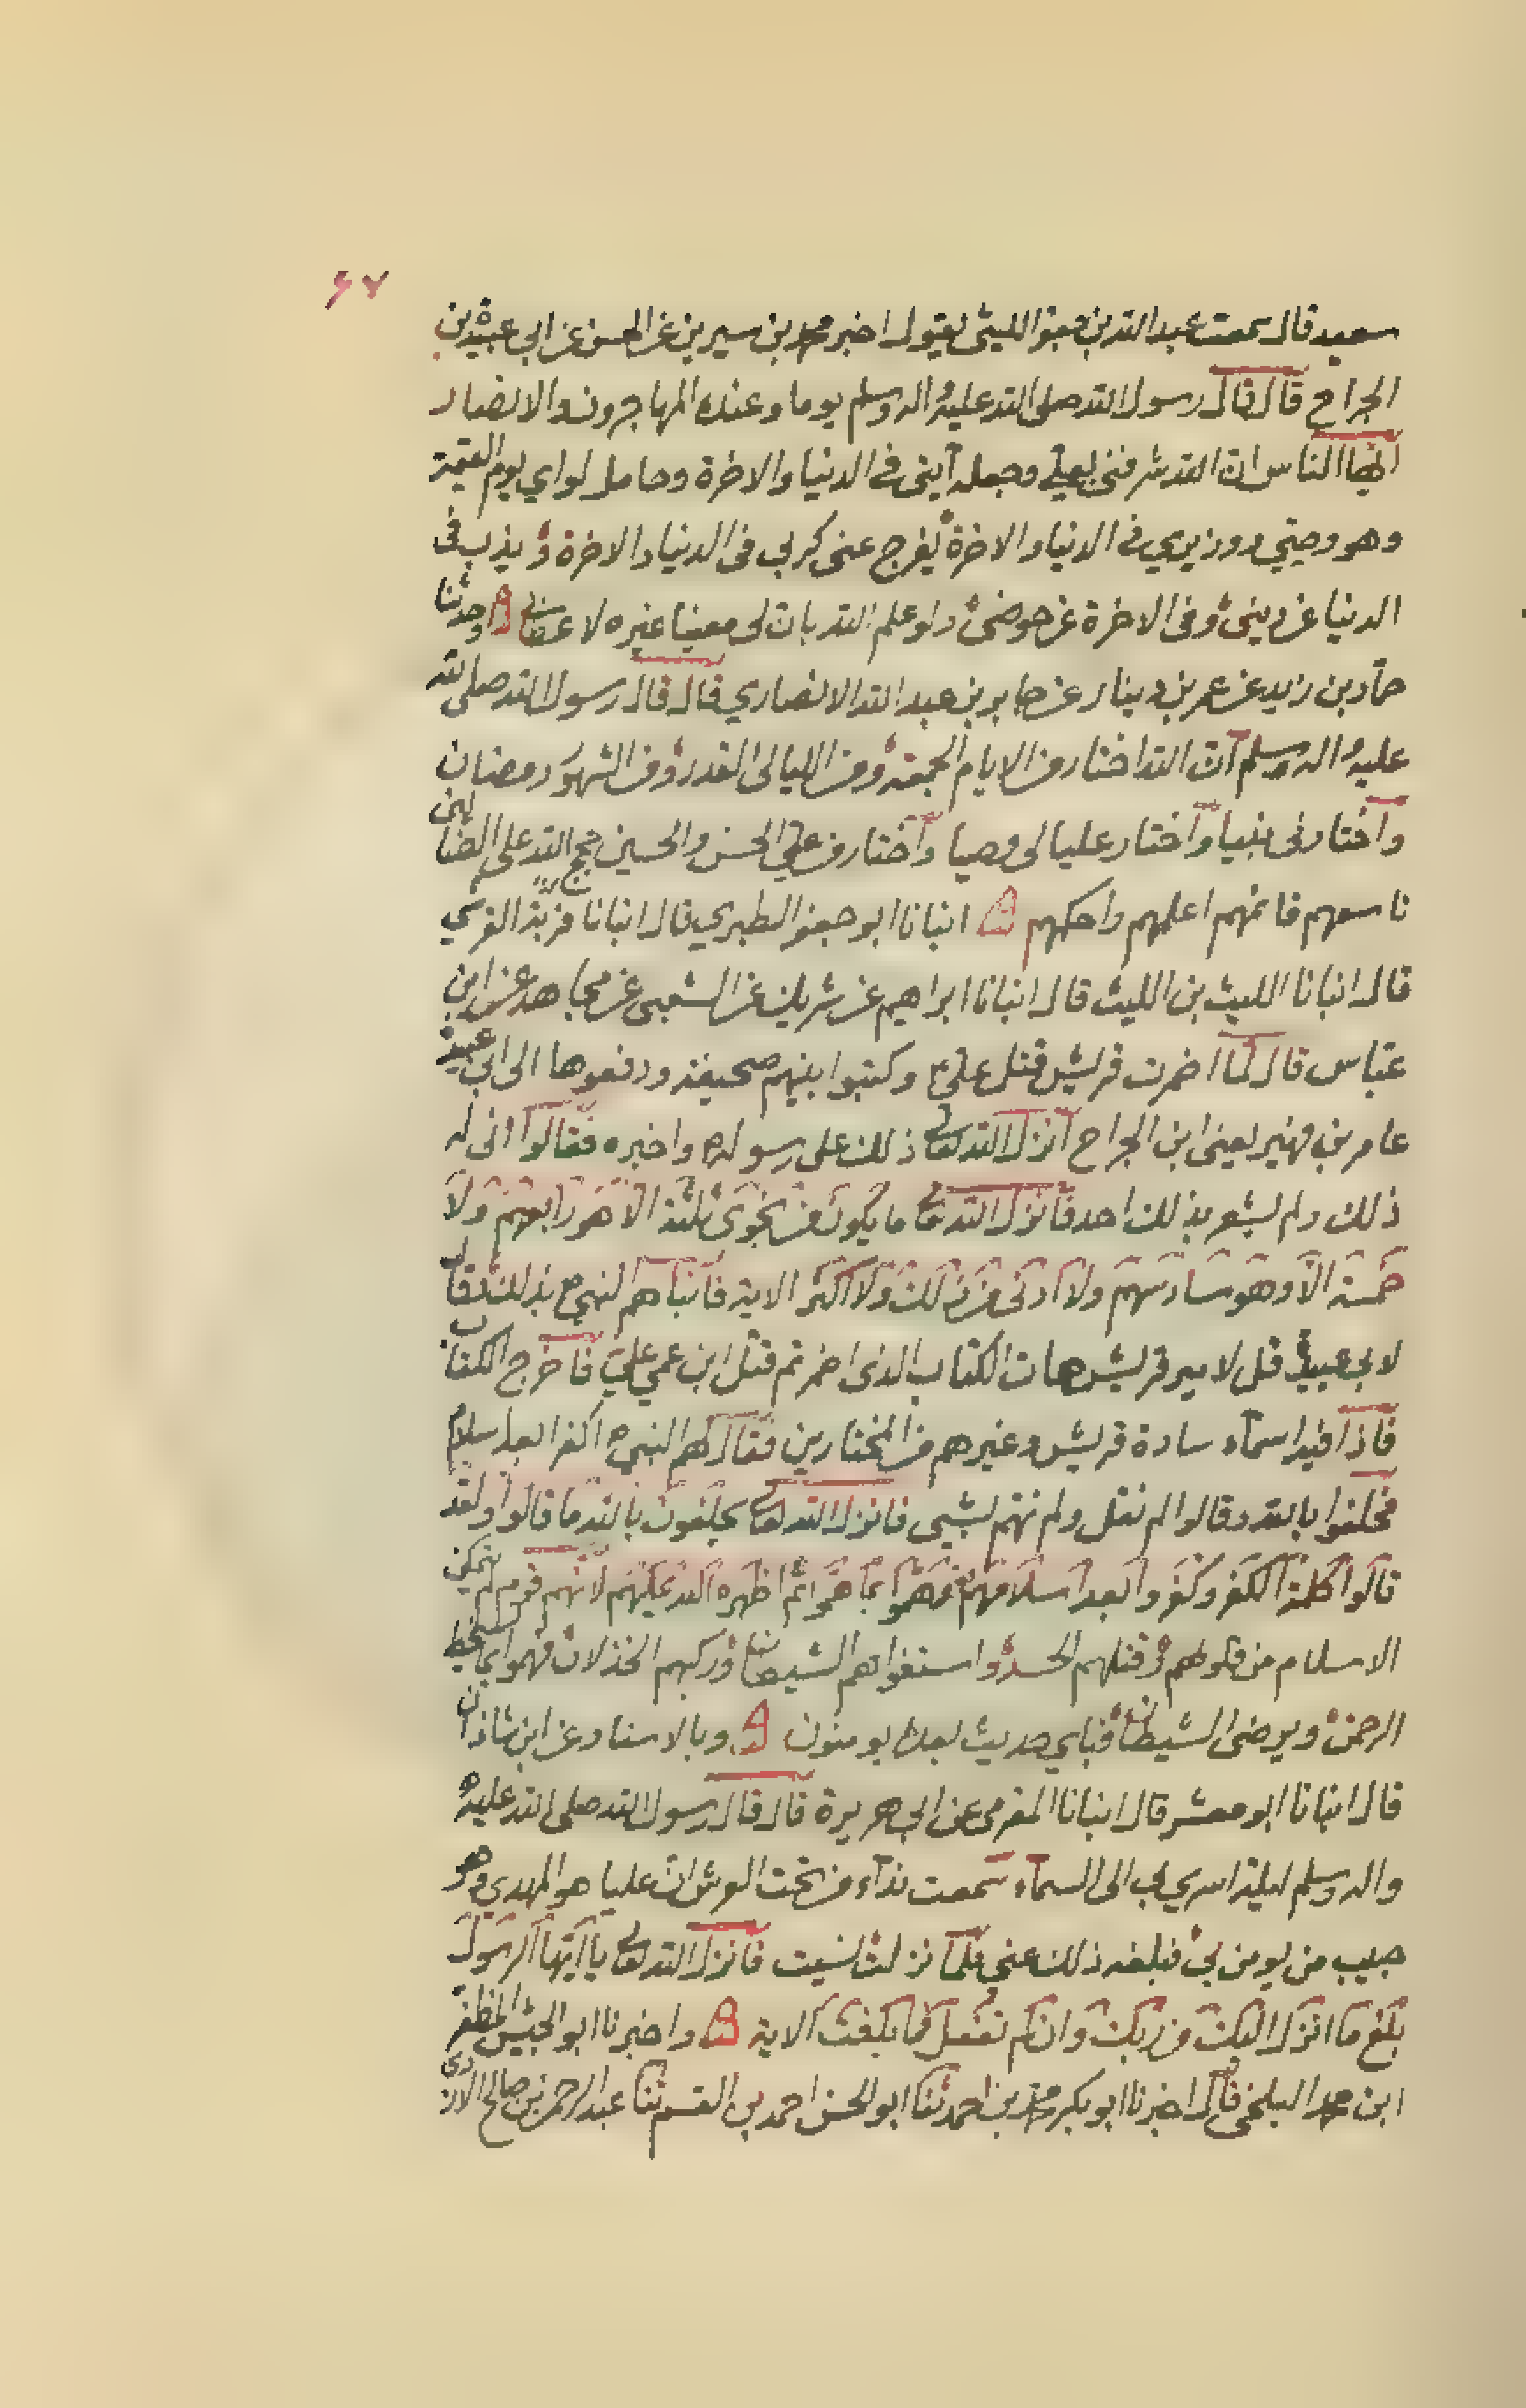 ٦٧
سعيد قال سمعت عبد الله بن جعفر الليثى يقول اخبر محمد بن سيرين عن الحسن عن ابي عبيدة بن
الجراح قال قال رسول الله صلى الله عليه واله وسلم يوما وعنده المهاجرون والانصار
ايها الناس ان الله شرفنى بعلي وجعله آيتى في الدنيا والاخرة وحامل لواي يوم القيمة
وهو وصيتي ووزيري في الدنيا والاخرة يفرج عنى كربي فى الدنيا والاخرة ويذب فى
الدنيا عن دينى وفى الاخرة عن حوضى ولو علم الله بان لى معينا غيره لاعطانى وحدثنا
حماد بن زيد عن عمر بن دينار عن جابر بن عبد الله الانصاري قال قال رسول الله صلى الله
عليه واله وسلم ان الله اختار من الايام الجمعة ومن الليالى القدر ومن الشهور رمضان
واختارنى نبيا واختار عليا لى وصيا واختار من علي الحسن والحسين حجج الله على العالمين
تاسعهم قائمهم اعلمهم واحكمهم انبانا ابو جعفر الطبري قال انبانا مزبة الفرسي
قال انبانا الليث بن الليث قال انبانا ابراهيم عن شريك عن الشعبى عن مجاهد عن ابن
عباس قال لما اضمرت قريش قتل علي وكتبوا بينهم صحيفة ودفعوها الى ابي عبيدة
عامر بن فهير يعنى ابن الجراح انزل الله تعالى ذلك على رسوله واخبره فقالوا انى له
ذلك ولم يشعر بذلك احد فانزل الله تعالى ما يكون من نجوى ثلثة الا هو رابعهم ولا
خمسة الا وهو سادسهم ولا ادنى من ذلك ولا اكثر الاية فانباهم النبي بذلك فقال
لابي عبيدة قل لامير قريش هات الكتاب الذى اضمرتم قتل ابن عمي علي فاخرج الكتاب
فاذا فيه اسماء سادة قريش وغيرهم من المختارين فقال لهم النبي اكفرا بعد اسلام
فحلفوا بالله وقالوا لم نقل ولم نهتم بشيى فانزل الله تعالى يحلفون بالله ما قالوا ولقد
قالوا كلمة الكفر وكفروا بعد اسلامهم وهموا بما هموا ثم اظهره الله عليهم لانهم قوم لم يتمكن
الاسلام من قلوبهم وقتلهم الحسد واستغواهم الشيطان وركبهم الخذلان فهموا بما يسخط
الرحمن ويرضى الشيطان فباي حديث بعده يومنون وبالاسناد عن ابن شاذان
قال انبانا ابو معشر قال انبانا المقرمى عن ابي هريرة قال قال رسول الله صلى الله عليه
واله وسلم ليلة اسري بي الى السماء سمعت نداء من تحت العرش ان عليا هو المهدي وهو
حبيب من يومن بي فبلغه ذلك عني فلما نزلت نسيت فانزل الله تعالى يا ايها الرسول
بلغ ما انزل اليك من ربك وان لم تفعل فما بلغت الاية واخبرنا ابو الجيش المظفر
ابن محمد البلخى قال اخبرنا ابو بكر محمد بن احمد ثنا ابو الحسن احمد بن القسم ثنا عبد الرحمن بن صالح الازدى